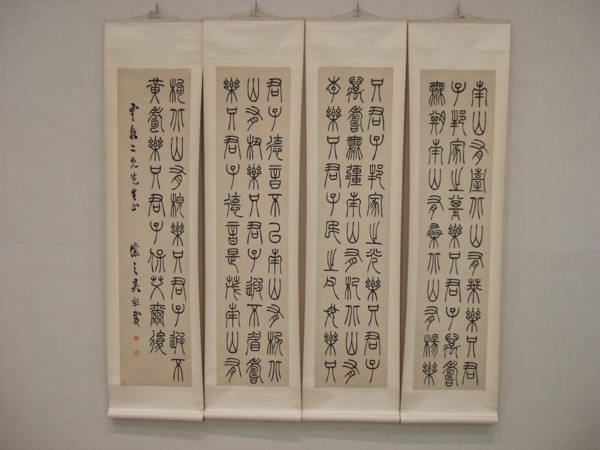 南山有臺北山有萊樂只君
子邦家之基樂只君子萬壽
無期南山有桑北山有楊樂
只君子邦家之光樂只君子
萬壽無疆南山有杞北山有
李樂只君子民之父母樂只
君子德音不已南山有栲北
山有杻樂只君子遐不眉壽
樂只君子德音是茂南山有
枸北山有楰樂只君子遐不
黃耇樂只君子保艾爾後
二兄先生正 讓之吳熙載